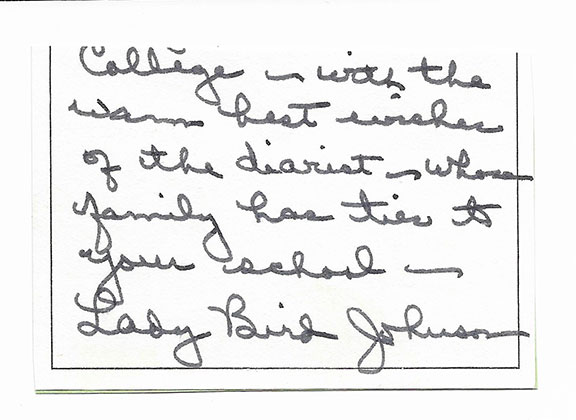 College – with the
warm best wishes
of the diarist – whose
family has ties to
your school –
Lady Bird Johnson